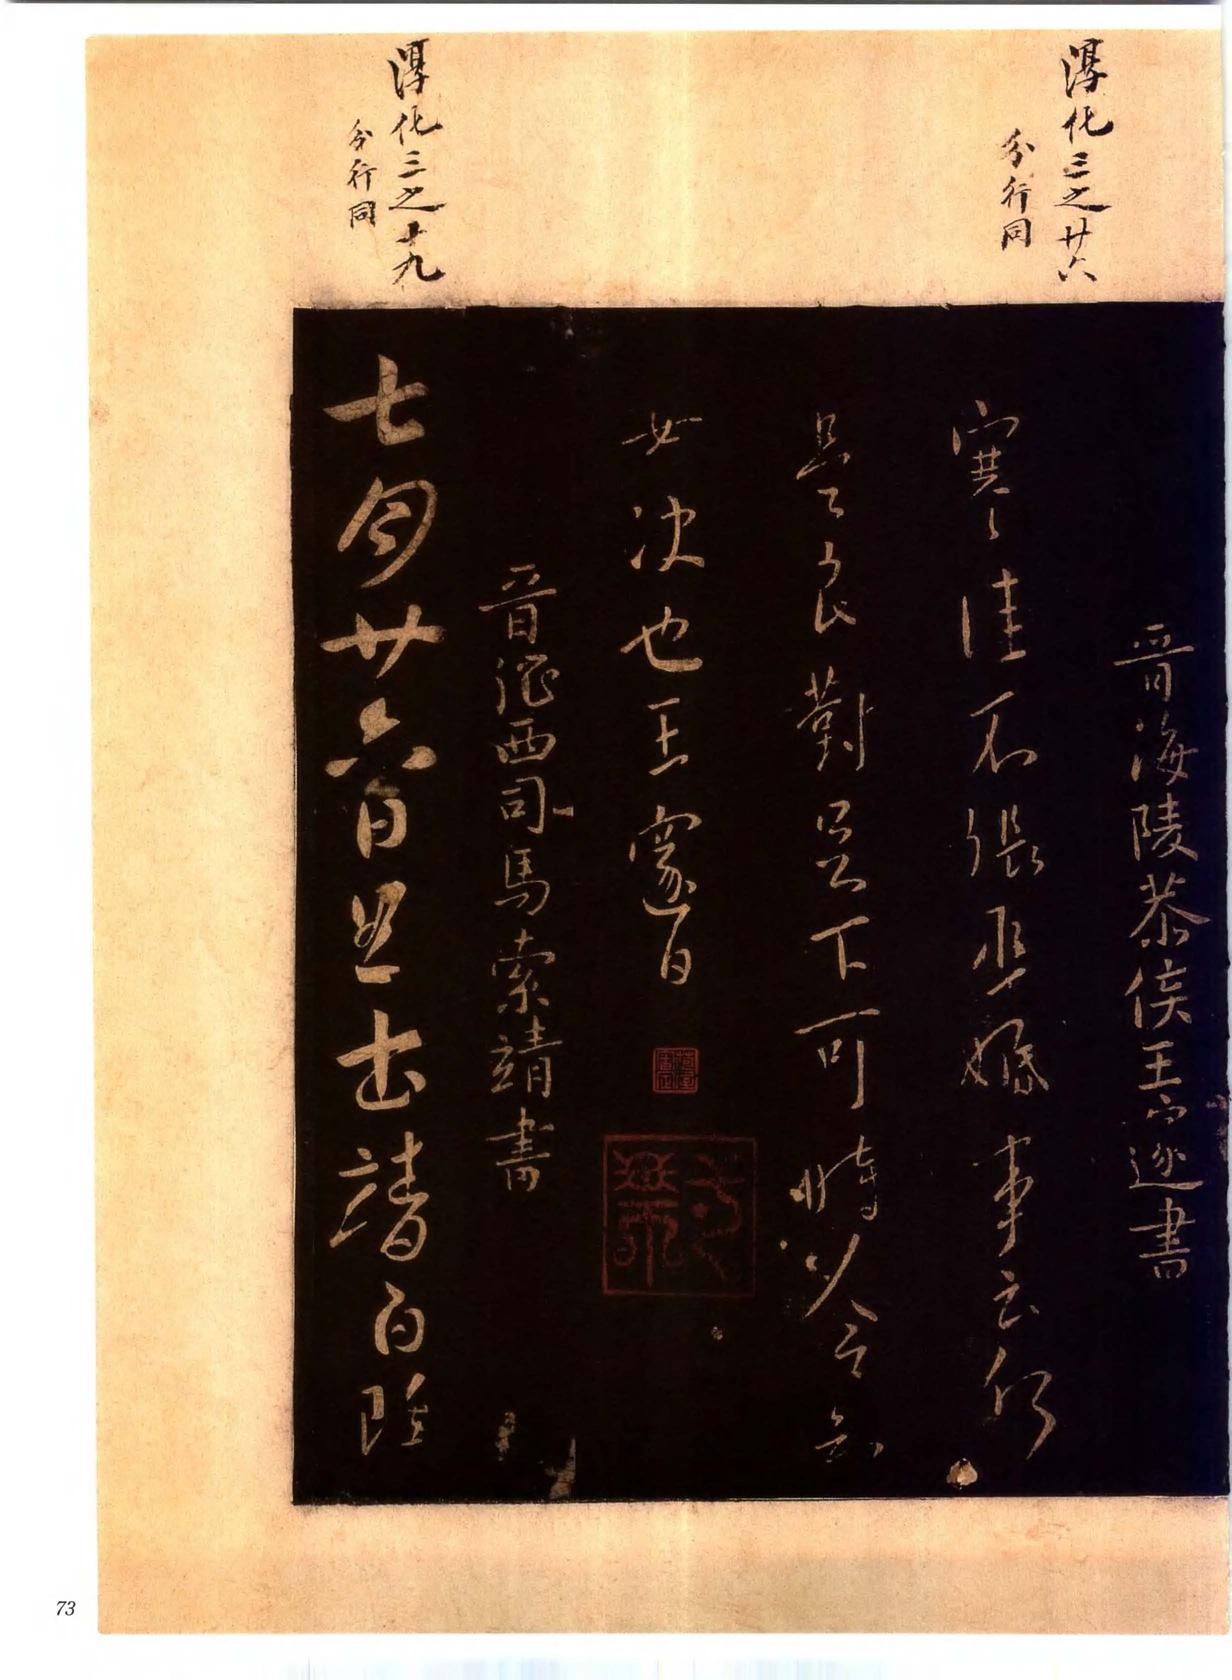 淳化三之廿六
分行同
晉海陵恭侯王邃書
寒寒佳不張丞婚事云何
良對足下可時令知
決也王邃白
淳化三之十九
分行同
晉征西司馬索靖書
七月廿六日具書靖白雖
73